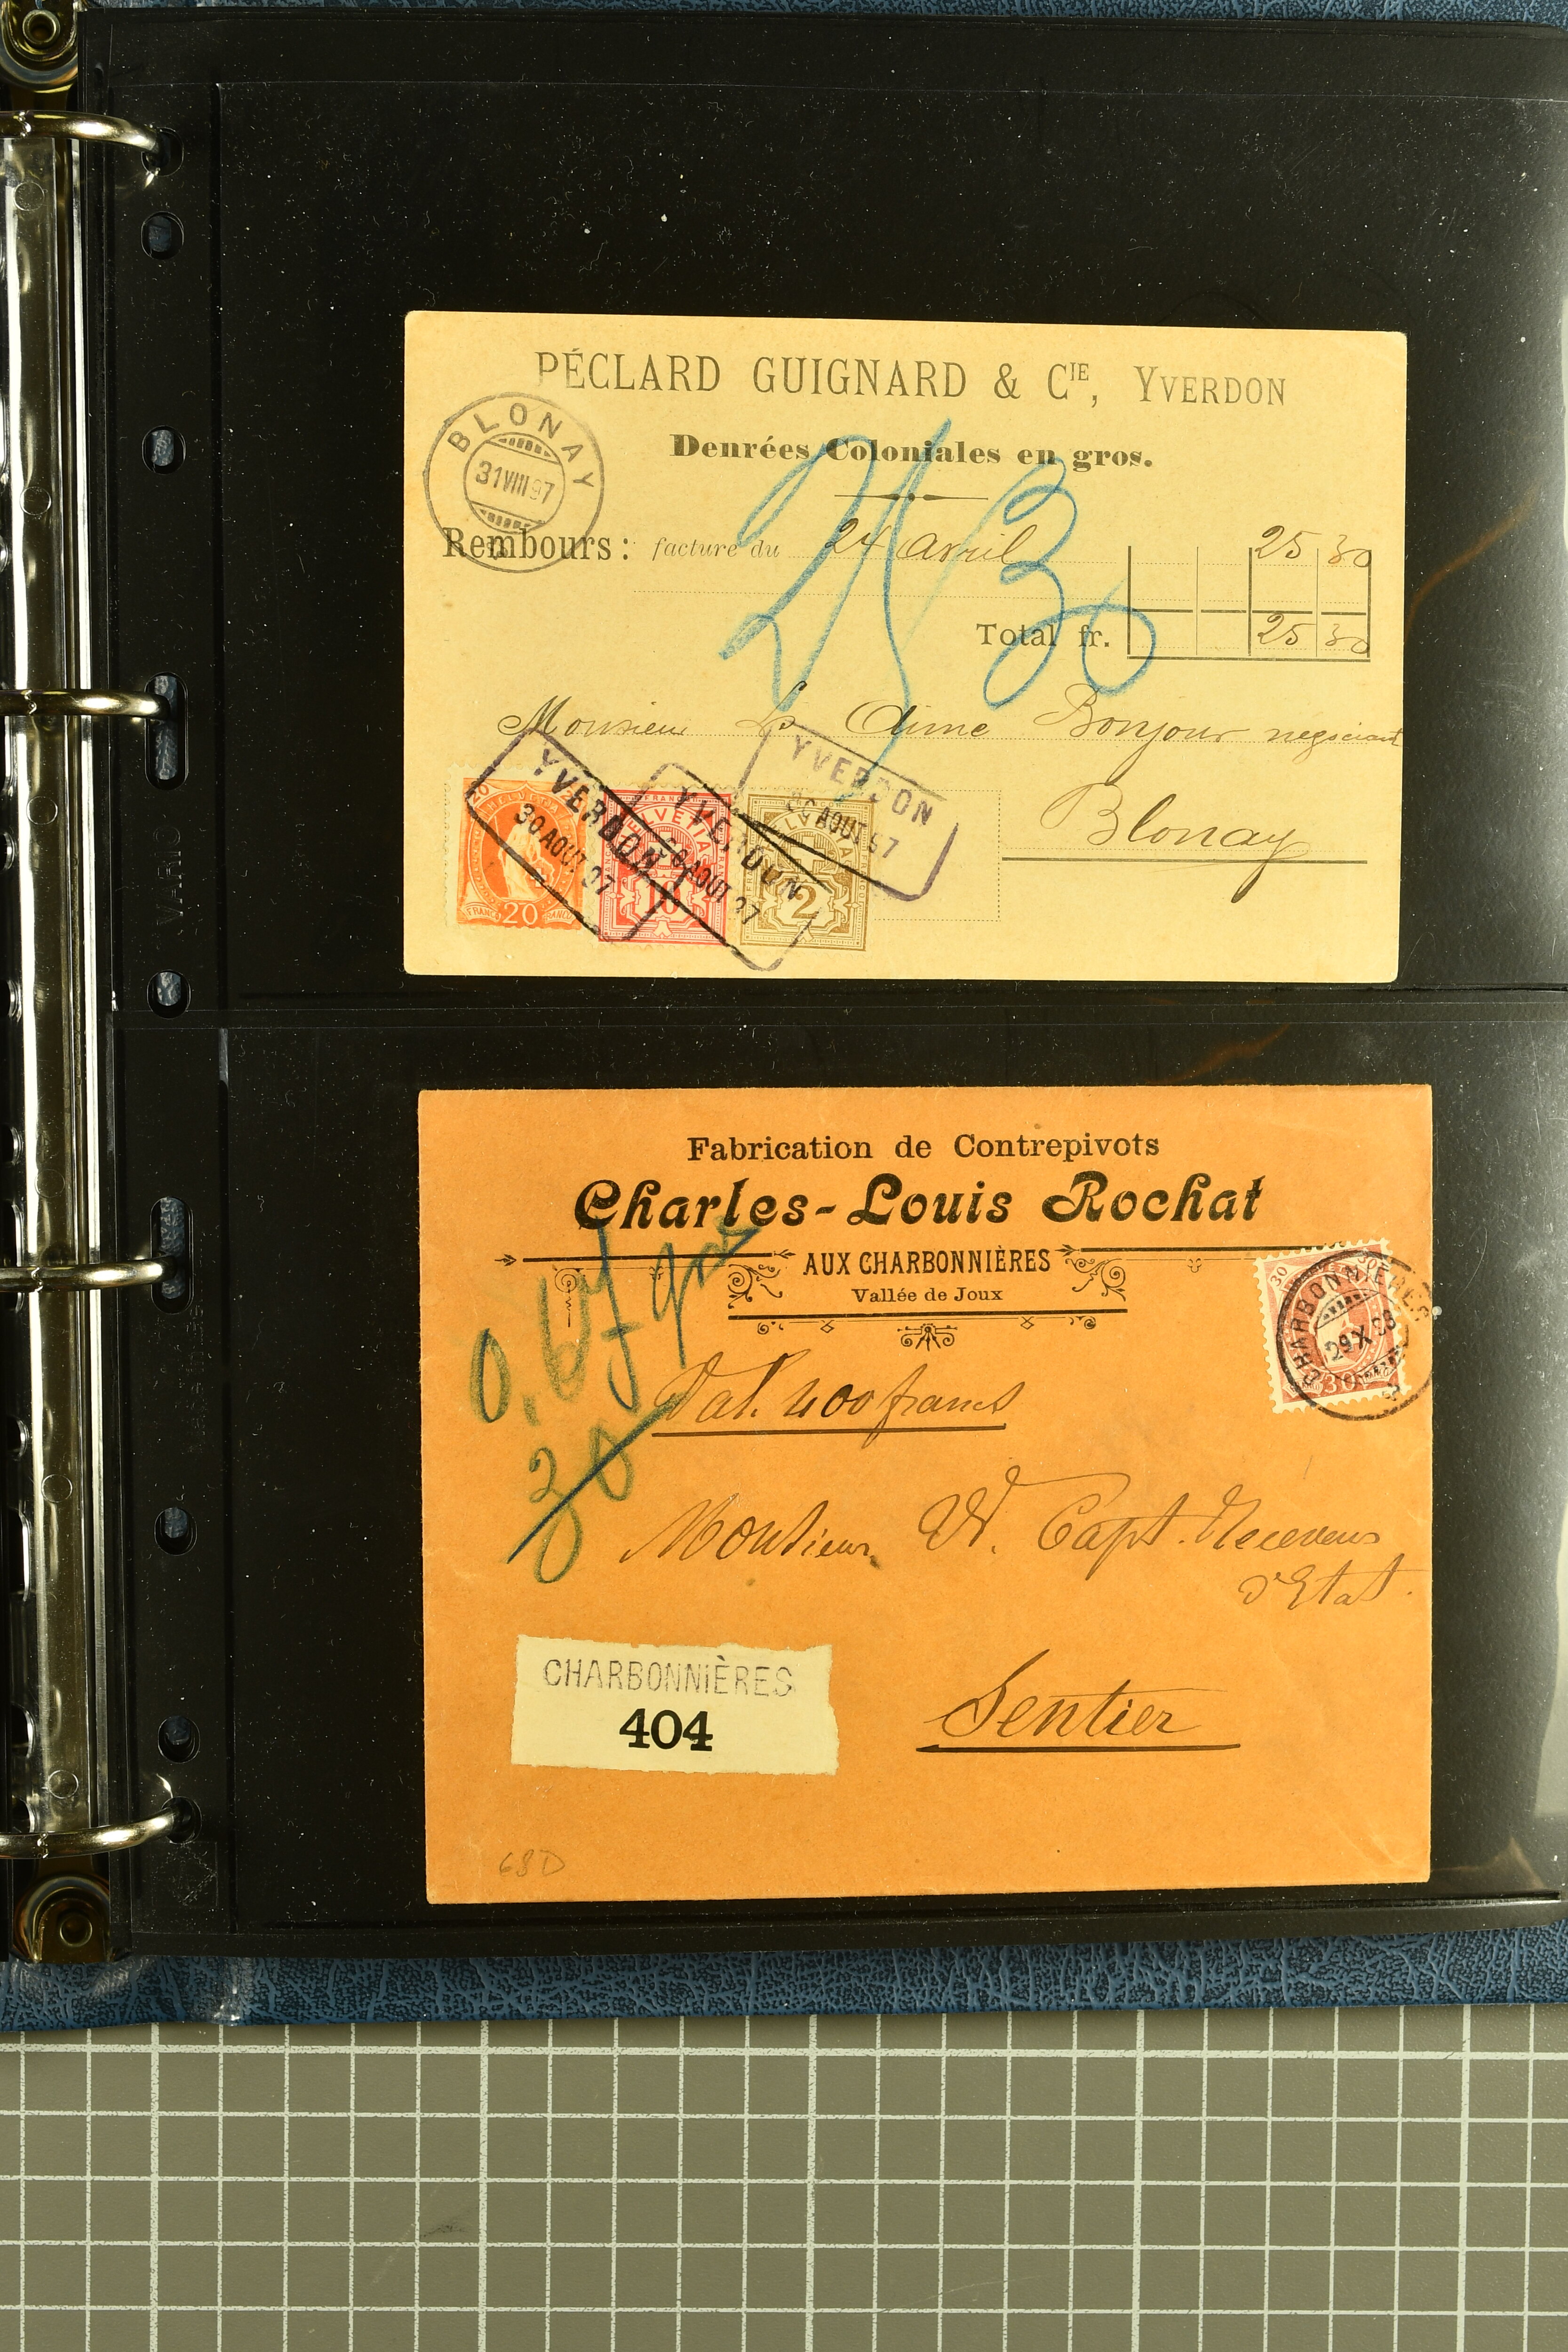 PÉCLARD GUIGNARD & CIE, YVERDON
Denrées Coloniales en gros.
BLONAY
31 VIII 97
Rembours: facture du 24 avril 25 30
25 30
Total fr. 25 30
Monsieur Ls Aimé Bonjour négociant
Blonay
YVERDON
30 AOUT 97
YVERDON
30 AOUT 97
YVERDON
AOUT 97
20
HELVETIA
FRANCO 20
FRANCO
HELVETIA
10
HELVETIA
2
VARIO
Fabrication de Contrepivots
Charles-Louis Rochat
AUX CHARBONNIÈRES
Vallée de Joux
30
CHARBONNIÈRES
29 X 98
0,67 gr
30
Val. 400 francs
Monsieur W. Capt. Receveur
d'Etat.
CHARBONNIÈRES
404
Sentier
68D